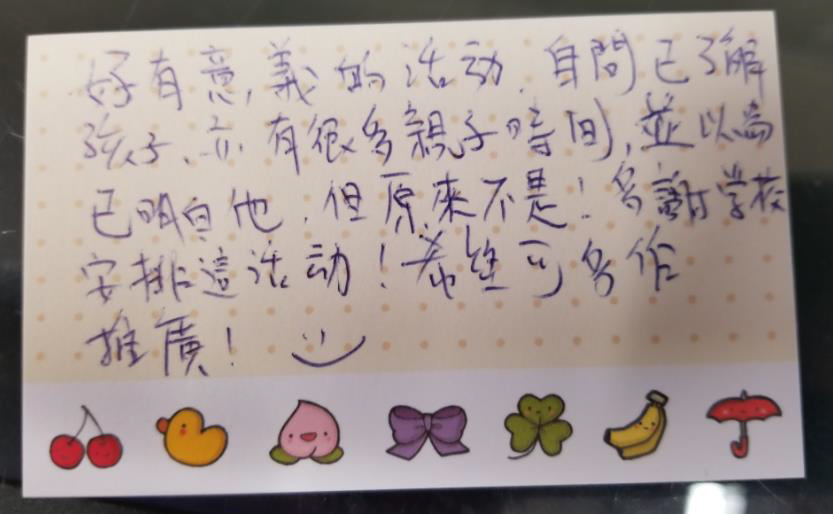 好有意義的活动，自問已了解
孩子、亦有很多親子時間，並以為
已明白他，但原來不是！多謝学校
安排這活动！希望可多作
推廣！